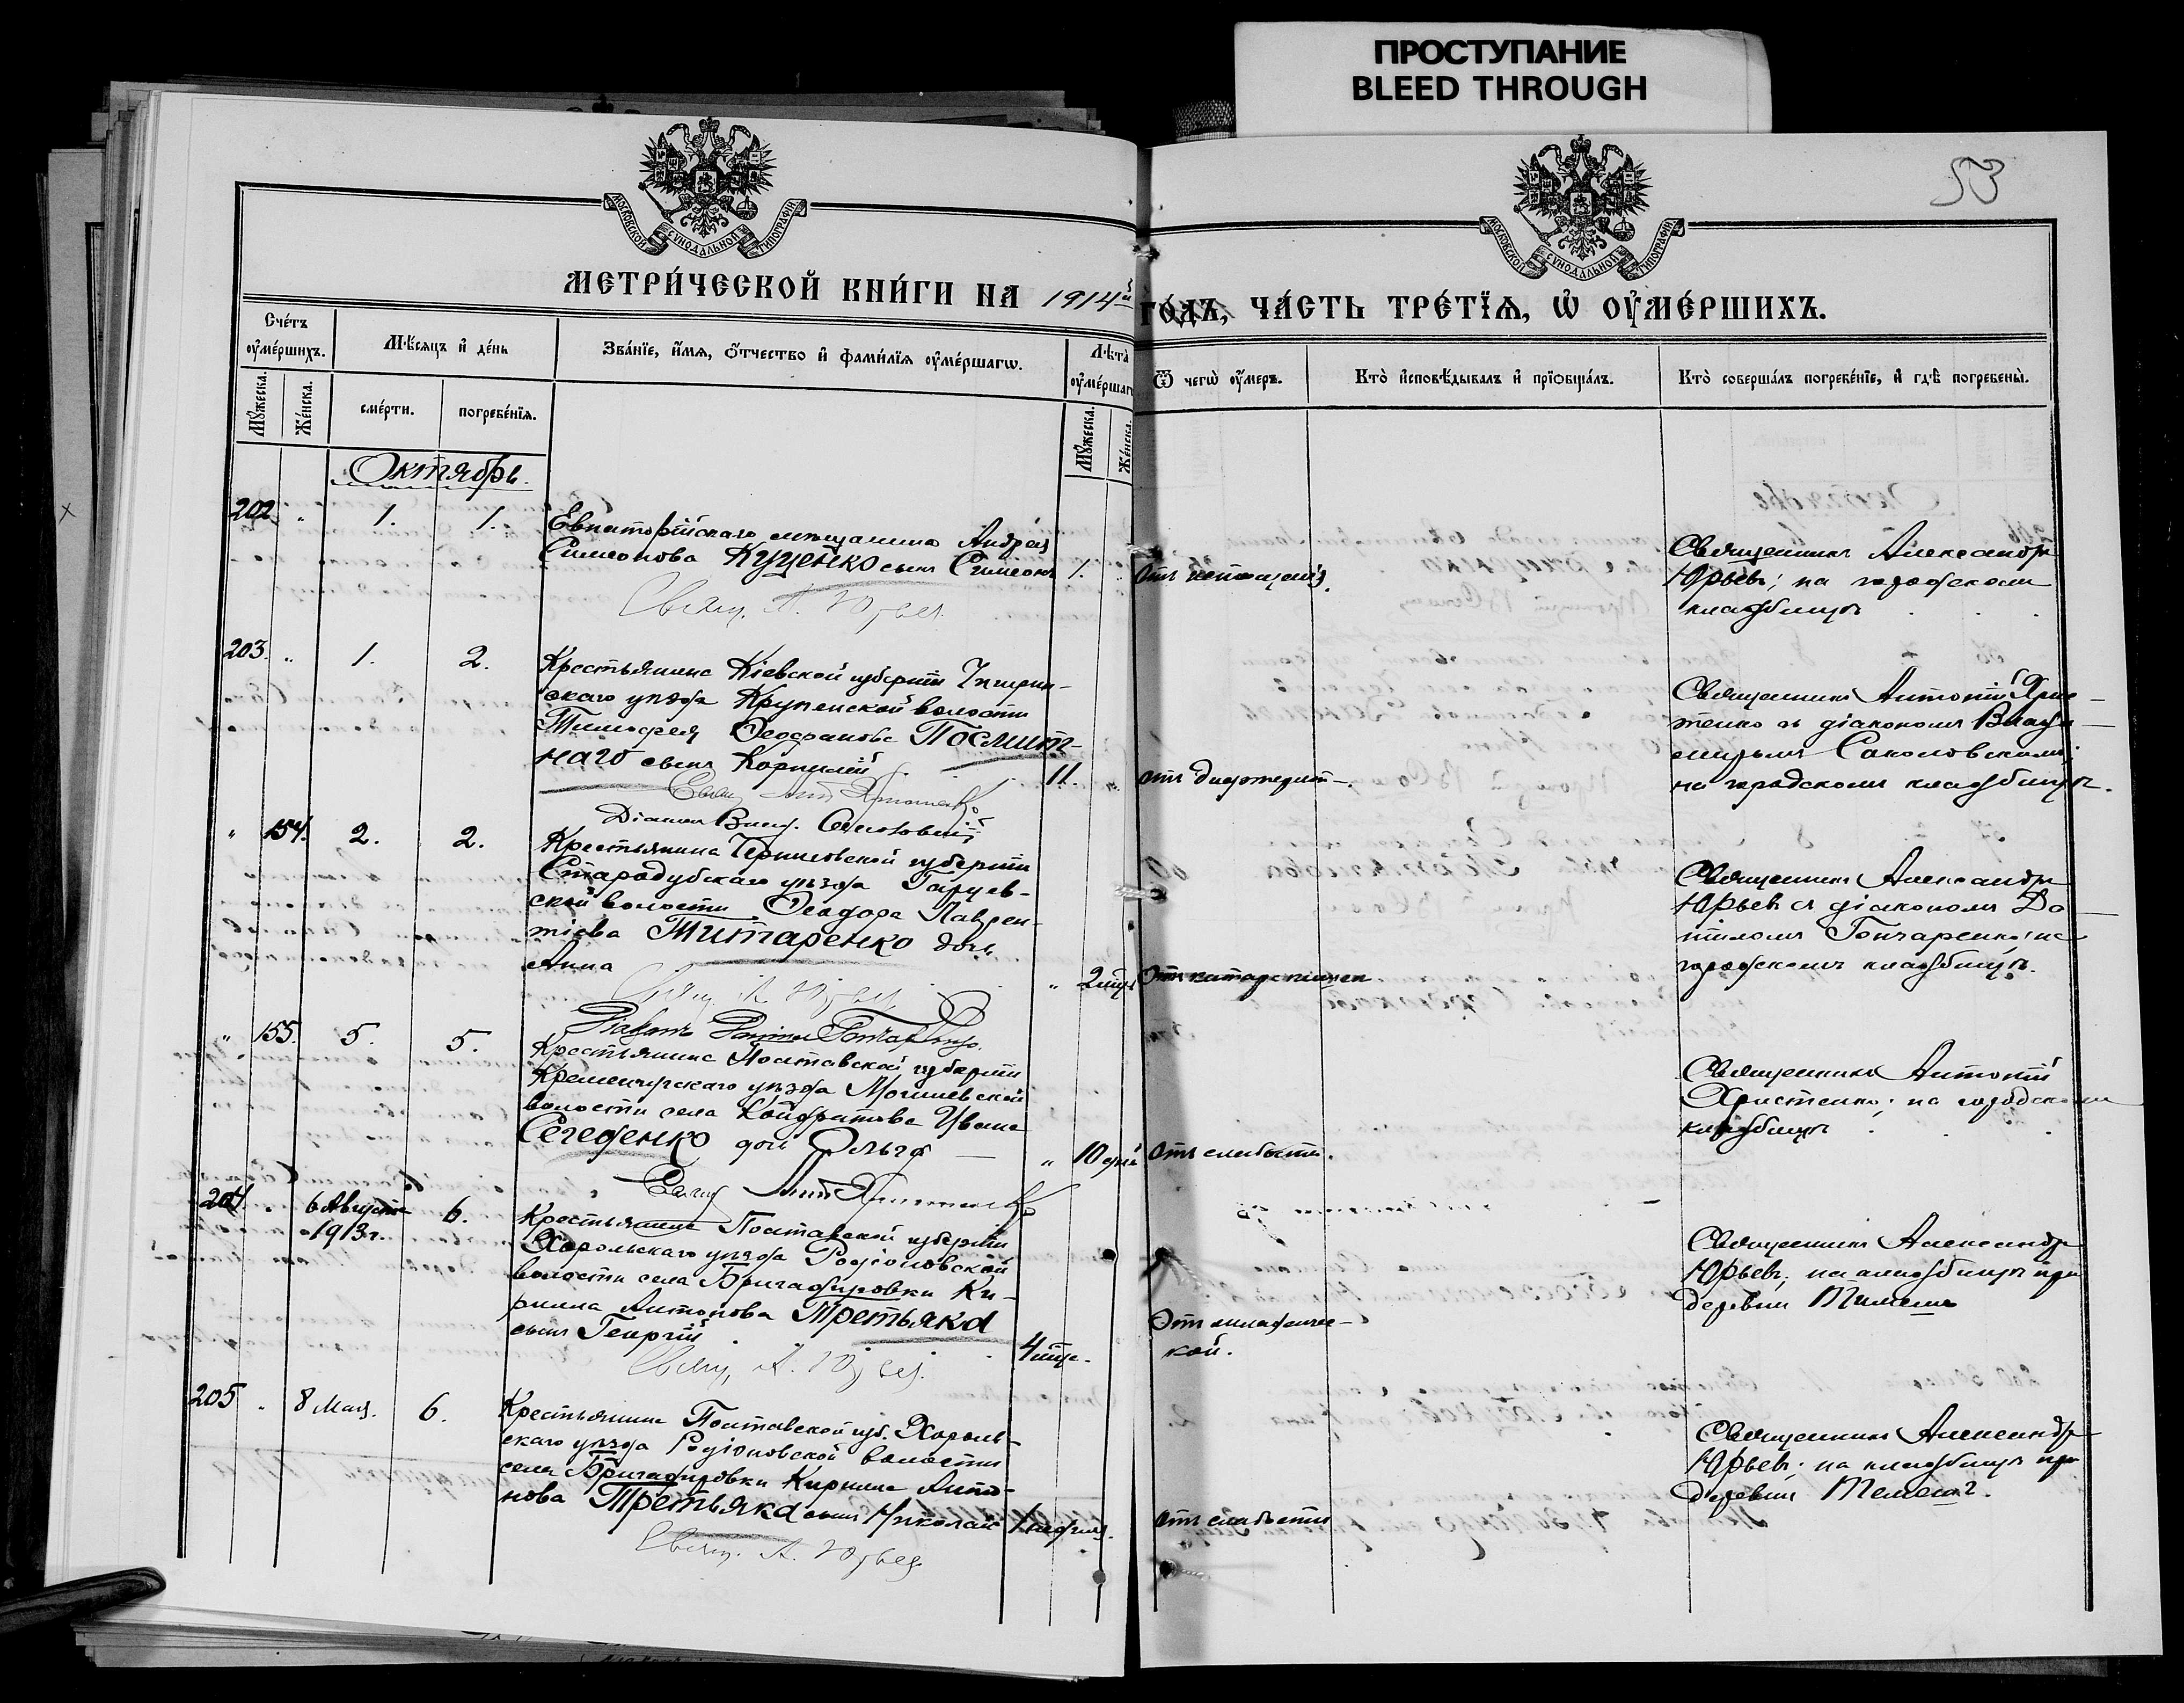 ПРОСТУПАНИЕ
BLEED THROUGH
53
МОСКОВСКОЙ СУНОДАЛЬНОЙ ТИПОГРАФІИ
МОСКОВСКОЙ СУНОДАЛЬНОЙ ТИПОГРАФІИ
МЕТРИ́ЧЕСКОЙ КНИ́ГИ НА 1914й
ГО́ДЪ, ЧА́СТЬ ТРЕ́ТІѦ, Ѡ ОУ҆МЕ́РШИХЪ.
Сче́тъ оу҆ме́ршихъ.
Мꙋ́жеска.
Же́нска.
Мѣ́сяцъ и҆ де́нь
сме́рти.
погребе́нїя.
Зва́нїе, и҆́мя, ѻ҆́тчество и҆ фами́лїя оу҆ме́ршагѡ.
Лѣта̀
оу҆ме́ршагѡ
Мꙋ́жеска.
Же́нска.
Ѿ чегѡ̀ оу҆́меръ.
Кто̀ и҆сповѣ́дывалъ и҆ прїѡбща́лъ.
Кто̀ соверша́лъ погребе́нїе, и҆ гдѣ̀ погребены̀.
Октябрь.
202. " 1. 1.
Евпаторійскаго мѣщанина Андрея
Симеонова Куценко сынъ Симеонъ 1. "
Свящ. А. Юрьев.
Отъ истощенія.
Священникъ Александръ
Юрьевъ; на городскомъ
кладбищѣ
203. " 1. 2.
Крестьянина Кіевской губерніи Чигирин-
скаго уѣзда Крупенской волости
Тимофея Ѳеофанова Посмит-
наго сынъ Корнилій 11. "
отъ дифтерит-.
Священникъ Антоній Хрис-
тенко съ діакономъ Влади-
міромъ Соколовскимъ;
на городскомъ кладбищѣ.
" 154. 2. 2.
Крестьянина Черниговской губерніи
Стародубскаго уѣзда
ской волости Ѳеодора Лаврен-
тіева Титаренко дочь
Анна " 2
Свящ. А. Юрьев
Діаконъ Даніилъ Гончаренко.
Священникъ Александръ
Юрьевъ съ діакономъ Да-
ніиломъ Гончаренко; на
городскомъ кладбищѣ.
" 155. 5. 5.
Крестьянина Полтавской губерніи
Кременчугскаго уѣзда
волости села Ивана
Сегеденко дочь Ольга " 10 дней
Отъ слабости.
Священникъ Антоній
Христенко; на городскомъ
кладбищѣ
204. 6 Августа 6.
1913 г.
Крестьянина Полтавской губерніи
Хорольскаго уѣзда Родіоновской
волости села Бригадировки Ки-
рилла Антонова Третьяка
сынъ Георгій 4 мѣс.
Свящ. А. Юрьев.
Отъ младенчес-
кой.
Священникъ Александръ
Юрьевъ; на кладбищѣ при
деревни
205 " 8 Мая. 6.
Крестьянина Полтавской губ. Хороль-
скаго уѣзда Родіоновской волости
села Бригадировки Кирилла Анто-
нова Третьяка сынъ Николай 1
Свящ. А. Юрьев
отъ слабости
Священникъ Александръ
Юрьевъ; на кладбищѣ при
деревни